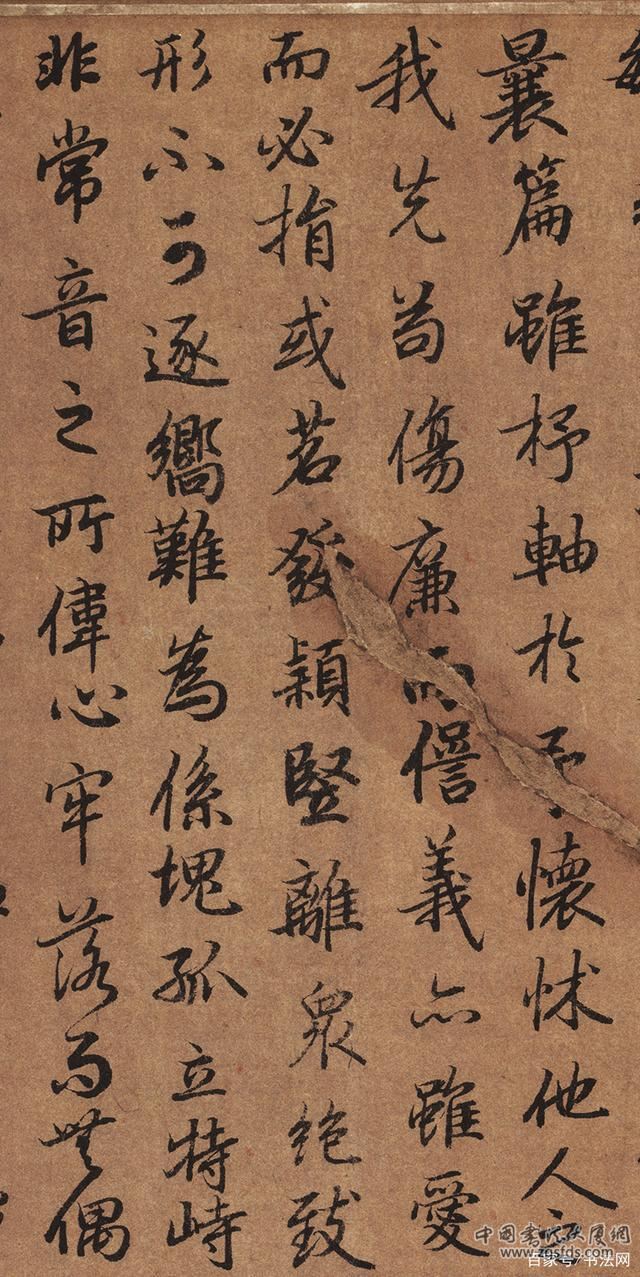 曩篇雖杼軸於予懷怵他人之
我先苟傷廉而諐義亦雖愛
而必捐或苕發穎竪離衆絶致
形不可逐嚮難為係塊孤立特峙
非常音之所偉心牢落而無偶
中國書法大厦網
www.zgsfds.com
百家号/书法网